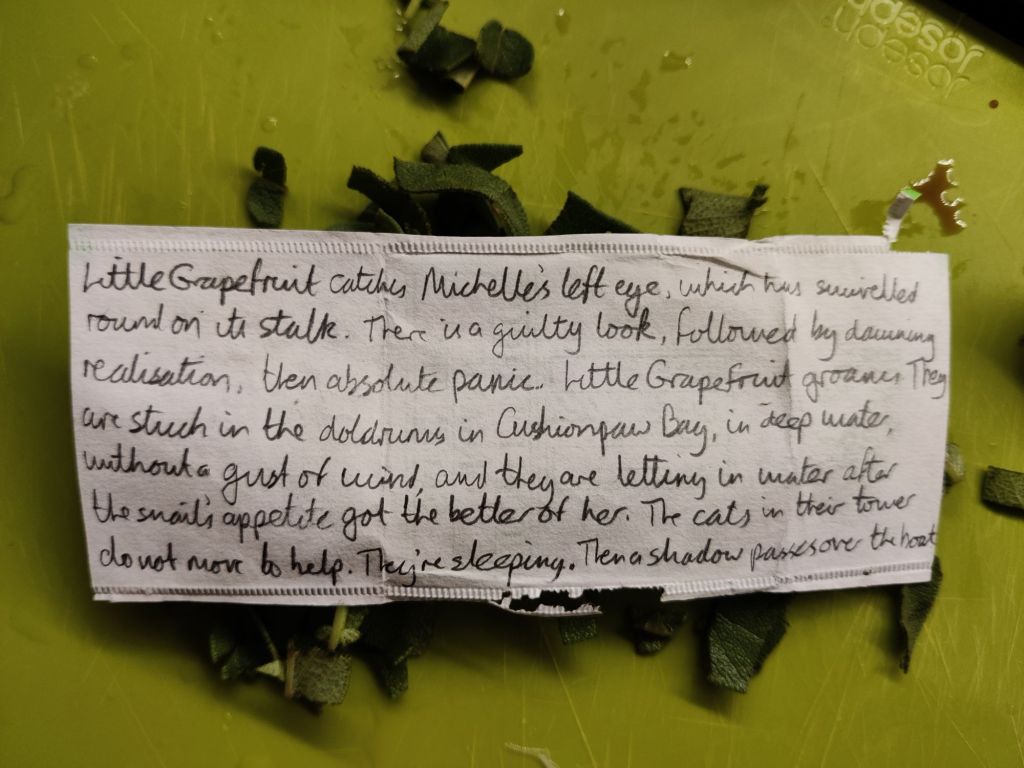 udesor
udesor
Little Grapefruit catches Michelle's left eye, which has swivelled
round on its stalk. There is a guilty look, followed by dawning
realisation, then absolute panic. Little Grapefruit groans. They
are stuck in the doldrums in Cushionpaw Bay, in deep water,
without a gust of wind, and they are letting in water after
the snail's appetite got the better of her. The cats in their tower
do not move to help. They're sleeping. Then a shadow passes over the boat